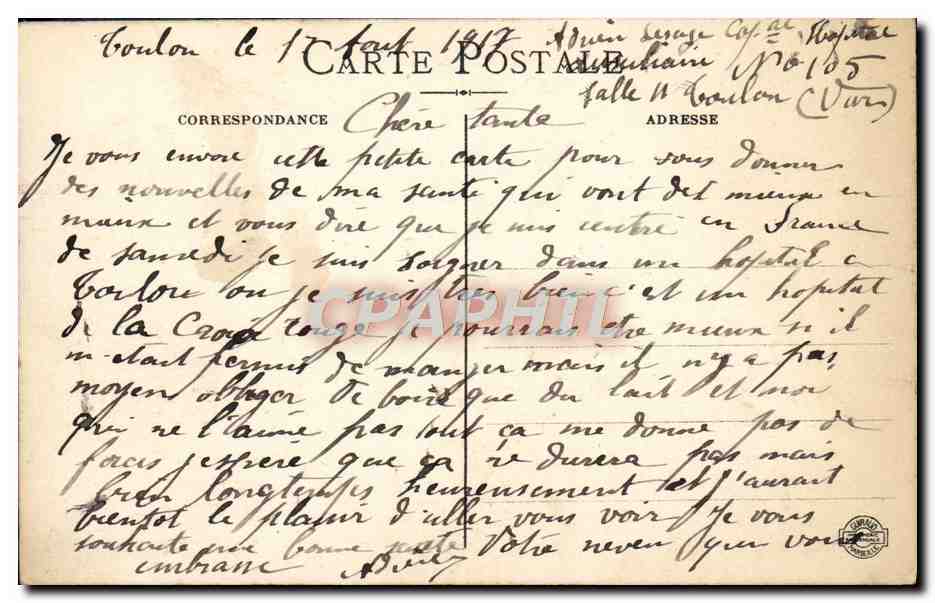 Toulon le 17 Aout 1917 Adrien Lesage Cap.al Hôpital
CARTE POSTALE auxiliaire No 105
salle 11 Toulon (Var)
CORRESPONDANCE Chère tante ADRESSE
Je vous envoie cette petite carte pour vous donner
des nouvelles de ma santé qui vont de mieux en
mieux et vous dire que je suis rentré en France
de samedi je suis soigner dans un hopital a
Toulon ou je suis tres bien c'est un hopital
de la Croix rouge je pourrais etre mieux si il
m-etait permis de manger mais il n'y a pas
moyen obliger de boire que du lait et moi
qui ne l'aime pas tout ça me donne pas de
forces j'espère que ça ne durera pas mais
bien longtemps heureusement et j'aurait
bientot le plaisir d'aller vous voir Je vous
souhaite une bonne santé Votre neveu qui vous
embrasse
CPAPHIL
GUIRAUD
MARSEILLE